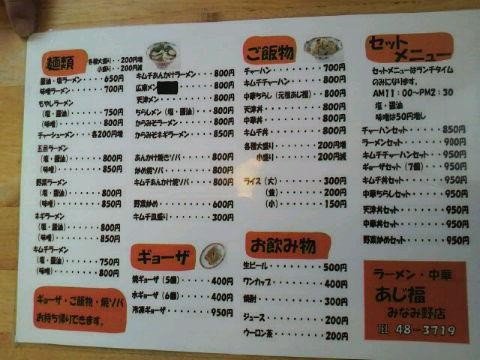 麺類
各種大盛り・200円増
小盛り・200円減
醤油・塩ラーメン・・650円
味噌ラーメン・・・・700円
もやしラーメン
(塩・醤油)・・・・750円
(味噌)・・・・・・800円
チャーシューメン・各200円増
五目ラーメン
(塩・醤油)・・・・800円
(味噌)・・・・・・850円
野菜ラーメン
(塩・醤油)・・・・800円
(味噌)・・・・・・850円
ネギラーメン
(塩・醤油)・・・・800円
(味噌)・・・・・・850円
キムチラーメン
(塩・醤油)・・・・750円
(味噌)・・・・・・800円
ギョーザ・ご飯物・焼ソバ
お持ち帰りできます。
キムチあんかけラーメン・・・800円
広東メン
800円
天津メン・・・・・・800円
ちらしメン(塩・醤油)・・800円
からみそラーメン・・・800円
からみそネギラーメン・・850円
あんかけ焼きソバ・・・800円
かめ焼ソバ・・・・・800円
キムチあんかけ焼ソバ・・800円
野菜炒め・・・・・・600円
キムチ皿盛り・・・・300円
ギョーザ
焼ギョーザ(5個)・・・400円
水ギョーザ(6個)・・・400円
冷凍ギョーザ・・・・950円
ご飯物
チャーハン・・・・・700円
キムチチャーハン・・・800円
中華ちらし(元祖あじ福)・・800円
天津丼・・・・・・・800円
中華丼・・・・・・・800円
キムチ丼・・・・・・800円
各種大盛り・・・・200円増
小盛り・・・・200円減
ライス(大)・・・・300円
(並)・・・・200円
(小)・・・・150円
お飲み物
生ビール・・・・・・500円
ワンカップ・・・・・400円
焼酎・・・・・・・・300円
ジュース・・・・・・200円
ウーロン茶・・・・・200円
セットメニュー
セットメニューはランチタイム
のみになります。
AM11:00~PM2:30
塩・醤油
味噌は50円増し
チャーハンセット・・・850円
ラーメンセット・・・・900円
キムチチャーハンセット・・950円
ギョーザセット(7個)・・950円
キムチ丼セット・・・・950円
中華ちらしセット・・・950円
天津丼セット・・・・・950円
中華丼セット・・・・・950円
野菜炒めセット・・・・950円
ラーメン・中華
あじ福
みなみ野店
℡ 48-3719